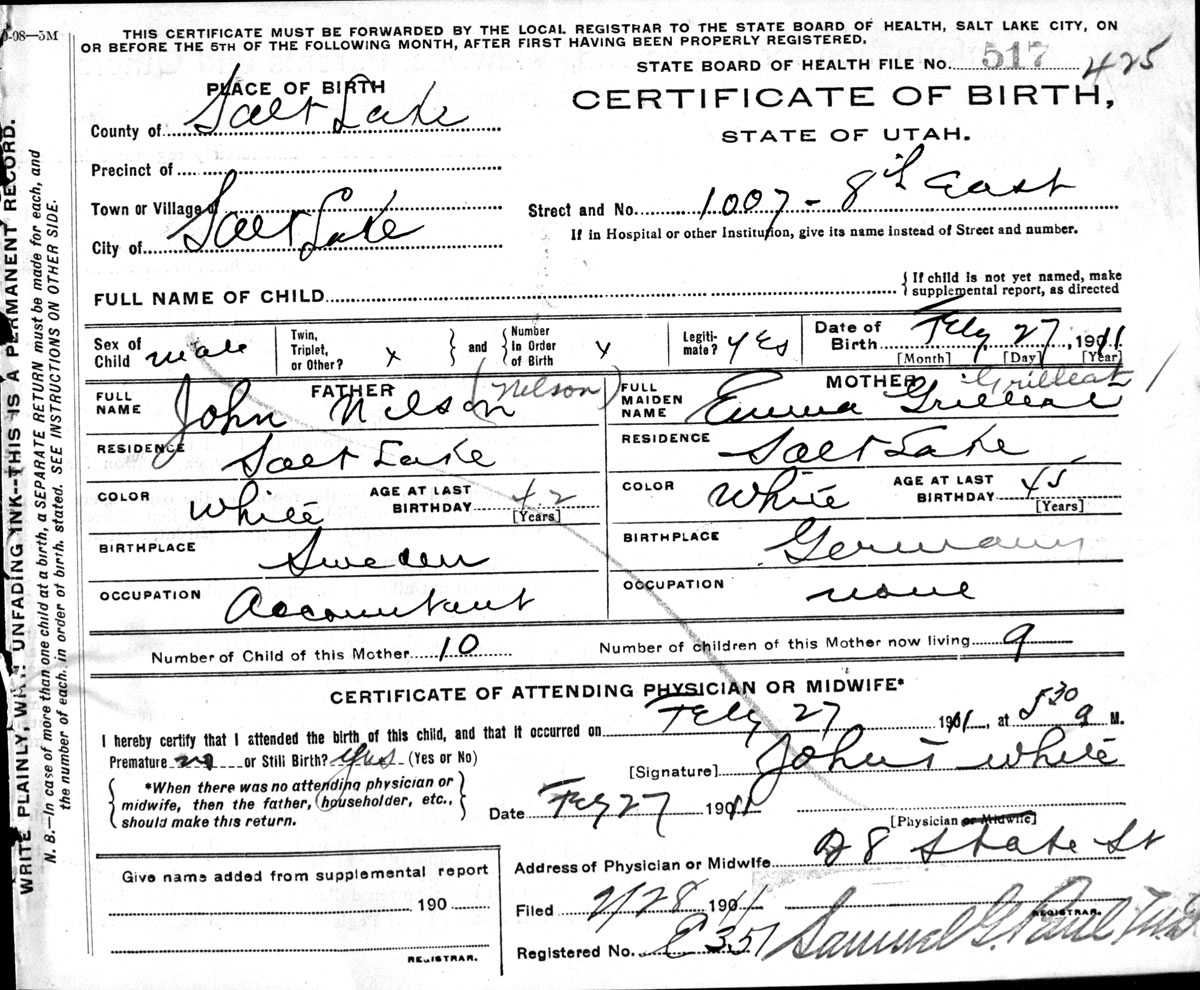 9-08—5M
THIS CERTIFICATE MUST BE FORWARDED BY THE LOCAL REGISTRAR TO THE STATE BOARD OF HEALTH, SALT LAKE CITY, ON
OR BEFORE THE 5TH OF THE FOLLOWING MONTH, AFTER FIRST HAVING BEEN PROPERLY REGISTERED.
STATE BOARD OF HEALTH FILE No. 517 425
PLACE OF BIRTH
CERTIFICATE OF BIRTH,
STATE OF UTAH.
County of Salt Lake
Precinct of
Town or Village of
City of Salt Lake
Street and No. 1007 - 8th East
If in Hospital or other Institution, give its name instead of Street and number.
FULL NAME OF CHILD
{ If child is not yet named, make
supplemental report, as directed
Sex of Child male
Twin, Triplet, or Other? x } and { Number in Order of Birth x
Legiti-mate? yes
Date of Birth Feby 27, 1911
[Month] [Day] [Year]
FATHER
FULL NAME John Nelson (Nelson)
RESIDENCE Salt Lake
COLOR White AGE AT LAST BIRTHDAY 42 [Years]
BIRTHPLACE Sweden
OCCUPATION Accountant
MOTHER Grilleat
FULL MAIDEN NAME Emma Grilleat
RESIDENCE Salt Lake
COLOR White AGE AT LAST BIRTHDAY 45 [Years]
BIRTHPLACE Germany
OCCUPATION none
Number of Child of this Mother 10 Number of children of this Mother now living 9
CERTIFICATE OF ATTENDING PHYSICIAN OR MIDWIFE*
I hereby certify that I attended the birth of this child, and that it occurred on Feby 27 1911, at 530 a M.
Premature no or Still Birth? yes (Yes or No)
[Signature] John T White
{ *When there was no attending physician or
midwife, then the father, householder, etc.,
should make this return. }
Date Feby 27 1911
[Physician or Midwife]
Address of Physician or Midwife 28 State St
Give name added from supplemental report
190
REGISTRAR.
Filed 2/28 1911
REGISTRAR.
Registered No. E 357 Samuel G. Paul
WRITE PLAINLY, WITH UNFADING INK—THIS IS A PERMANENT RECORD.
N. B.—In case of more than one child at a birth, a SEPARATE RETURN must be made for each, and
the number of each, in order of birth, stated. SEE INSTRUCTIONS ON OTHER SIDE.